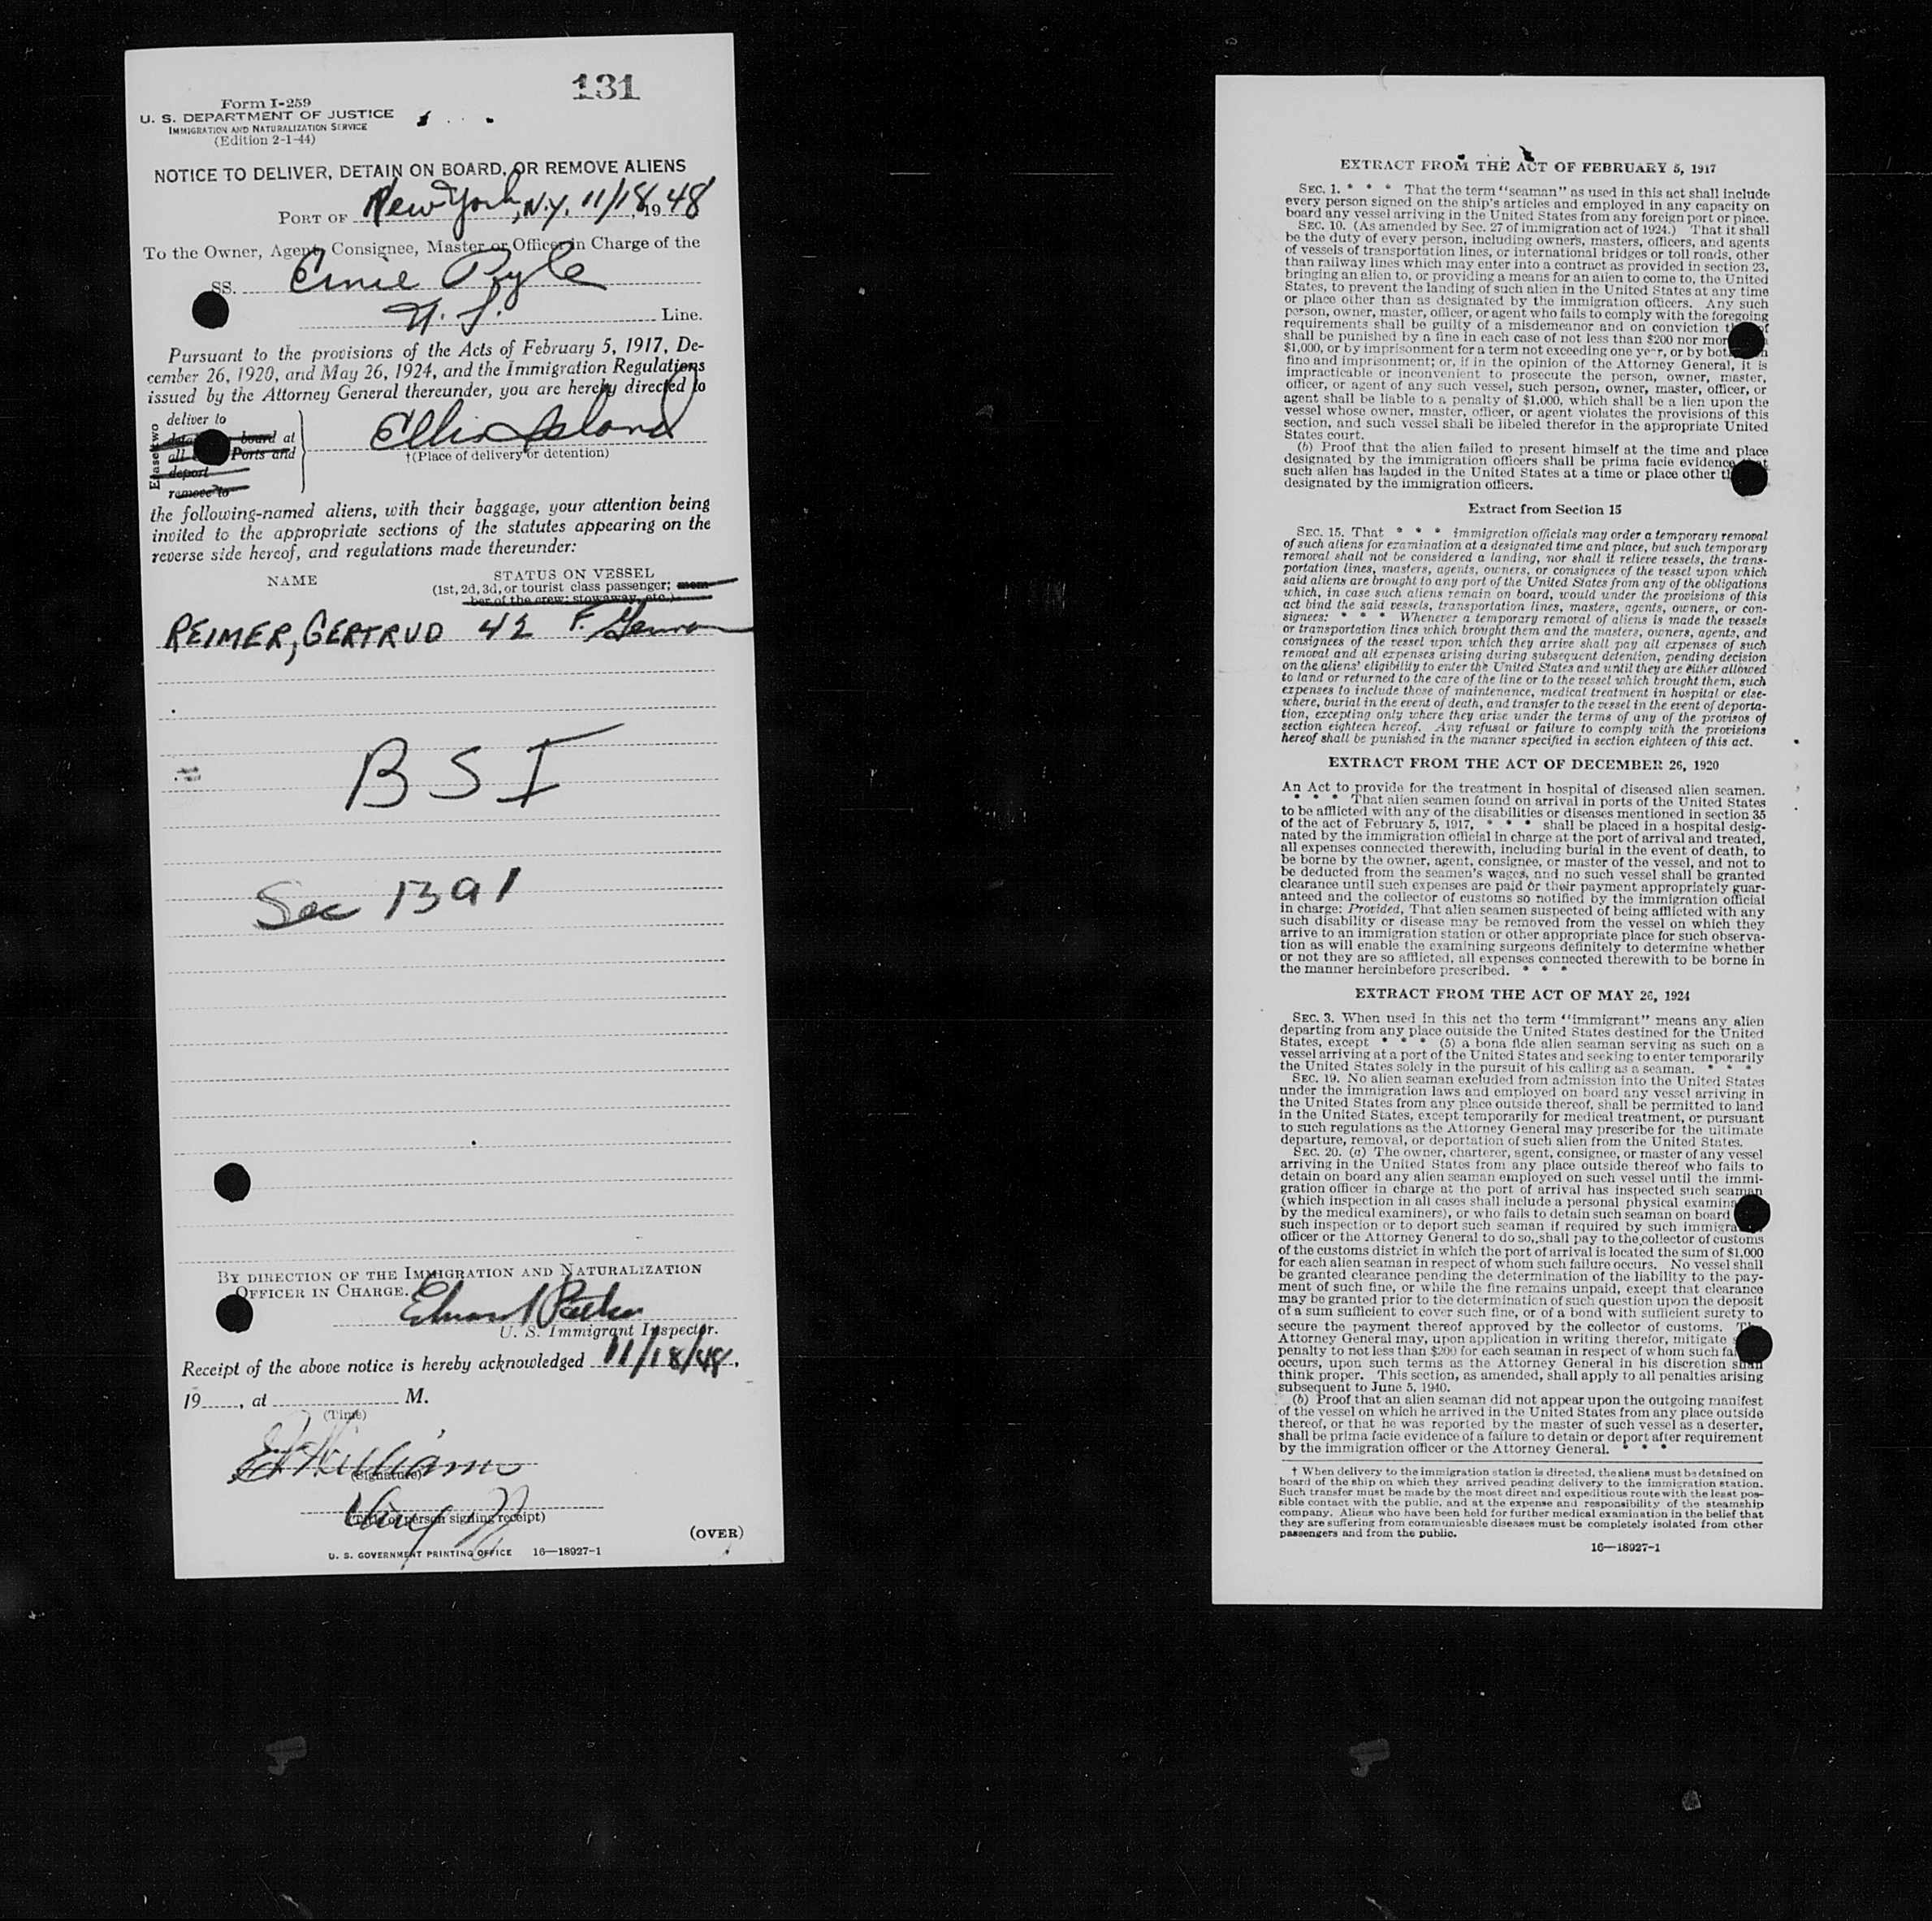 131
Form I-259
U. S. DEPARTMENT OF JUSTICE
IMMIGRATION AND NATURALIZATION SERVICE
(Edition 2-1-44)
NOTICE TO DELIVER, DETAIN ON BOARD, OR REMOVE ALIENS
PORT OF New York, N.Y. 11/18, 1948
To the Owner, Agent, Consignee, Master or Officer in Charge of the
SS. Ernie Pyle
Line.
Pursuant to the provisions of the Acts of February 5, 1917, De-
cember 26, 1920, and May 26, 1924, and the Immigration Regulations
issued by the Attorney General thereunder, you are hereby directed to
deliver to
board at
all Ports and
deport
remove to
Ellis Island
†(Place of delivery or detention)
the following-named aliens, with their baggage, your attention being
invited to the appropriate sections of the statutes appearing on the
reverse side hereof, and regulations made thereunder:
NAME
STATUS ON VESSEL
(1st, 2d, 3d, or tourist class passenger; mem-
ber of the crew; stowaway, etc.)
REIMER, GERTRUD 42 F. German
BSI
Sec 1391
BY DIRECTION OF THE IMMIGRATION AND NATURALIZATION
OFFICER IN CHARGE.
U. S. Immigrant Inspector.
Receipt of the above notice is hereby acknowledged 11/18/48,
19....., at M.
(Time)
Williams
(Signature)
(Title of person signing receipt)
(OVER)
U. S. GOVERNMENT PRINTING OFFICE 16—18927-1
EXTRACT FROM THE ACT OF FEBRUARY 5, 1917
SEC. 1. * * * That the term "seaman" as used in this act shall include
every person signed on the ship's articles and employed in any capacity on
board any vessel arriving in the United States from any foreign port or place.
SEC. 10. (As amended by Sec. 27 of immigration act of 1924.) That it shall
be the duty of every person, including owners, masters, officers, and agents
of vessels of transportation lines, or international bridges or toll roads, other
than railway lines which may enter into a contract as provided in section 23,
bringing an alien to, or providing a means for an alien to come to, the United
States, to prevent the landing of such alien in the United States at any time
or place other than as designated by the immigration officers. Any such
person, owner, master, officer, or agent who fails to comply with the foregoing
requirements shall be guilty of a misdemeanor and on conviction
shall be punished by a fine in each case of not less than $200 nor more
$1,000, or by imprisonment for a term not exceeding one year, or by both
fine and imprisonment; or, if in the opinion of the Attorney General, it is
impracticable or inconvenient to prosecute the person, owner, master,
officer, or agent of any such vessel, such person, owner, master, officer, or
agent shall be liable to a penalty of $1,000, which shall be a lien upon the
vessel whose owner, master, officer, or agent violates the provisions of this
section, and such vessel shall be libeled therefor in the appropriate United
States court.
(b) Proof that the alien failed to present himself at the time and place
designated by the immigration officers shall be prima facie evidence
such alien has landed in the United States at a time or place other
designated by the immigration officers.
Extract from Section 15
SEC. 15. That * * * immigration officials may order a temporary removal
of such aliens for examination at a designated time and place, but such temporary
removal shall not be considered a landing, nor shall it relieve vessels, the trans-
portation lines, masters, agents, owners, or consignees of the vessel upon which
said aliens are brought to any port of the United States from any of the obligations
which, in case such aliens remain on board, would under the provisions of this
act bind the said vessels, transportation lines, masters, agents, owners, or con-
signees: * * * Whenever a temporary removal of aliens is made the vessels
or transportation lines which brought them and the masters, owners, agents, and
consignees of the vessel upon which they arrive shall pay all expenses of such
removal and all expenses arising during subsequent detention, pending decision
on the aliens' eligibility to enter the United States and until they are either allowed
to land or returned to the care of the line or to the vessel which brought them, such
expenses to include those of maintenance, medical treatment in hospital or else-
where, burial in the event of death, and transfer to the vessel in the event of deporta-
tion, excepting only where they arise under the terms of any of the provisos of
section eighteen hereof. Any refusal or failure to comply with the provisions
hereof shall be punished in the manner specified in section eighteen of this act.
EXTRACT FROM THE ACT OF DECEMBER 26, 1920
An Act to provide for the treatment in hospital of diseased alien seamen.
* * * That alien seamen found on arrival in ports of the United States
to be afflicted with any of the disabilities or diseases mentioned in section 35
of the act of February 5, 1917, * * * shall be placed in a hospital desig-
nated by the immigration official in charge at the port of arrival and treated,
all expenses connected therewith, including burial in the event of death, to
be borne by the owner, agent, consignee, or master of the vessel, and not to
be deducted from the seamen's wages, and no such vessel shall be granted
clearance until such expenses are paid or their payment appropriately guar-
anteed and the collector of customs so notified by the immigration official
in charge: Provided, That alien seamen suspected of being afflicted with any
such disability or disease may be removed from the vessel on which they
arrive to an immigration station or other appropriate place for such observa-
tion as will enable the examining surgeons definitely to determine whether
or not they are so afflicted, all expenses connected therewith to be borne in
the manner hereinbefore prescribed. * * *
EXTRACT FROM THE ACT OF MAY 26, 1924
SEC. 3. When used in this act the term "immigrant" means any alien
departing from any place outside the United States destined for the United
States, except * * * (5) a bona fide alien seaman serving as such on a
vessel arriving at a port of the United States and seeking to enter temporarily
the United States solely in the pursuit of his calling as a seaman. * * *
SEC. 19. No alien seaman excluded from admission into the United States
under the immigration laws and employed on board any vessel arriving in
the United States from any place outside thereof, shall be permitted to land
in the United States, except temporarily for medical treatment, or pursuant
to such regulations as the Attorney General may prescribe for the ultimate
departure, removal, or deportation of such alien from the United States.
SEC. 20. (a) The owner, charterer, agent, consignee, or master of any vessel
arriving in the United States from any place outside thereof who fails to
detain on board any alien seaman employed on such vessel until the immi-
gration officer in charge at the port of arrival has inspected such seaman
(which inspection in all cases shall include a personal physical
by the medical examiners), or who fails to detain such seaman on board
such inspection or to deport such seaman if required by such
officer or the Attorney General to do so, shall pay to the collector of customs
of the customs district in which the port of arrival is located the sum of $1,000
for each alien seaman in respect of whom such failure occurs. No vessel shall
be granted clearance pending the determination of the liability to the pay-
ment of such fine, or while the fine remains unpaid, except that clearance
may be granted prior to the determination of such question upon the deposit
of a sum sufficient to cover such fine, or of a bond with sufficient surety to
secure the payment thereof approved by the collector of customs. The
Attorney General may, upon application in writing therefor, mitigate
penalty to not less than $200 for each seaman in respect of whom such
occurs, upon such terms as the Attorney General in his discretion shall
think proper. This section, as amended, shall apply to all penalties arising
subsequent to June 5, 1940.
(b) Proof that an alien seaman did not appear upon the outgoing manifest
of the vessel on which he arrived in the United States from any place outside
thereof, or that he was reported by the master of such vessel as a deserter,
shall be prima facie evidence of a failure to detain or deport after requirement
by the immigration officer or the Attorney General. * * *
† When delivery to the immigration station is directed, the aliens must be detained on
board of the ship on which they arrived pending delivery to the immigration station.
Such transfer must be made by the most direct and expeditious route with the least pos-
sible contact with the public, and at the expense and responsibility of the steamship
company. Aliens who have been held for further medical examination in the belief that
they are suffering from communicable diseases must be completely isolated from other
passengers and from the public.
16—18927-1